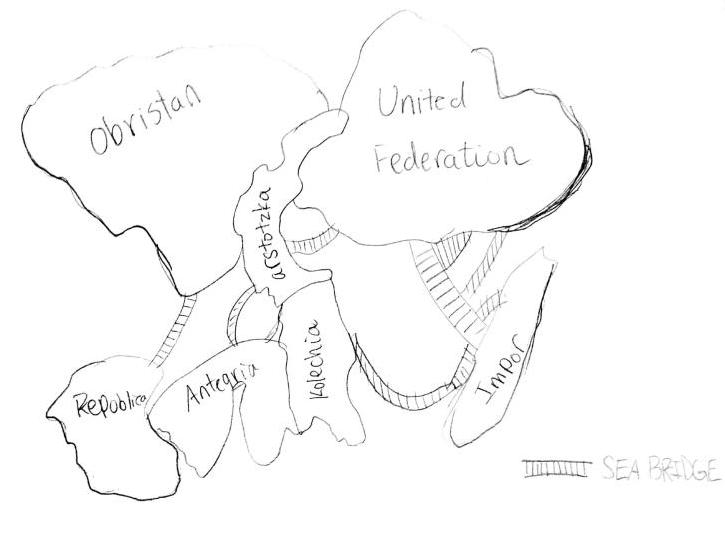 Obristan
United
Federation
arstotzka
Republica
Antegria
Kolechia
Impor
SEA BRIDGE